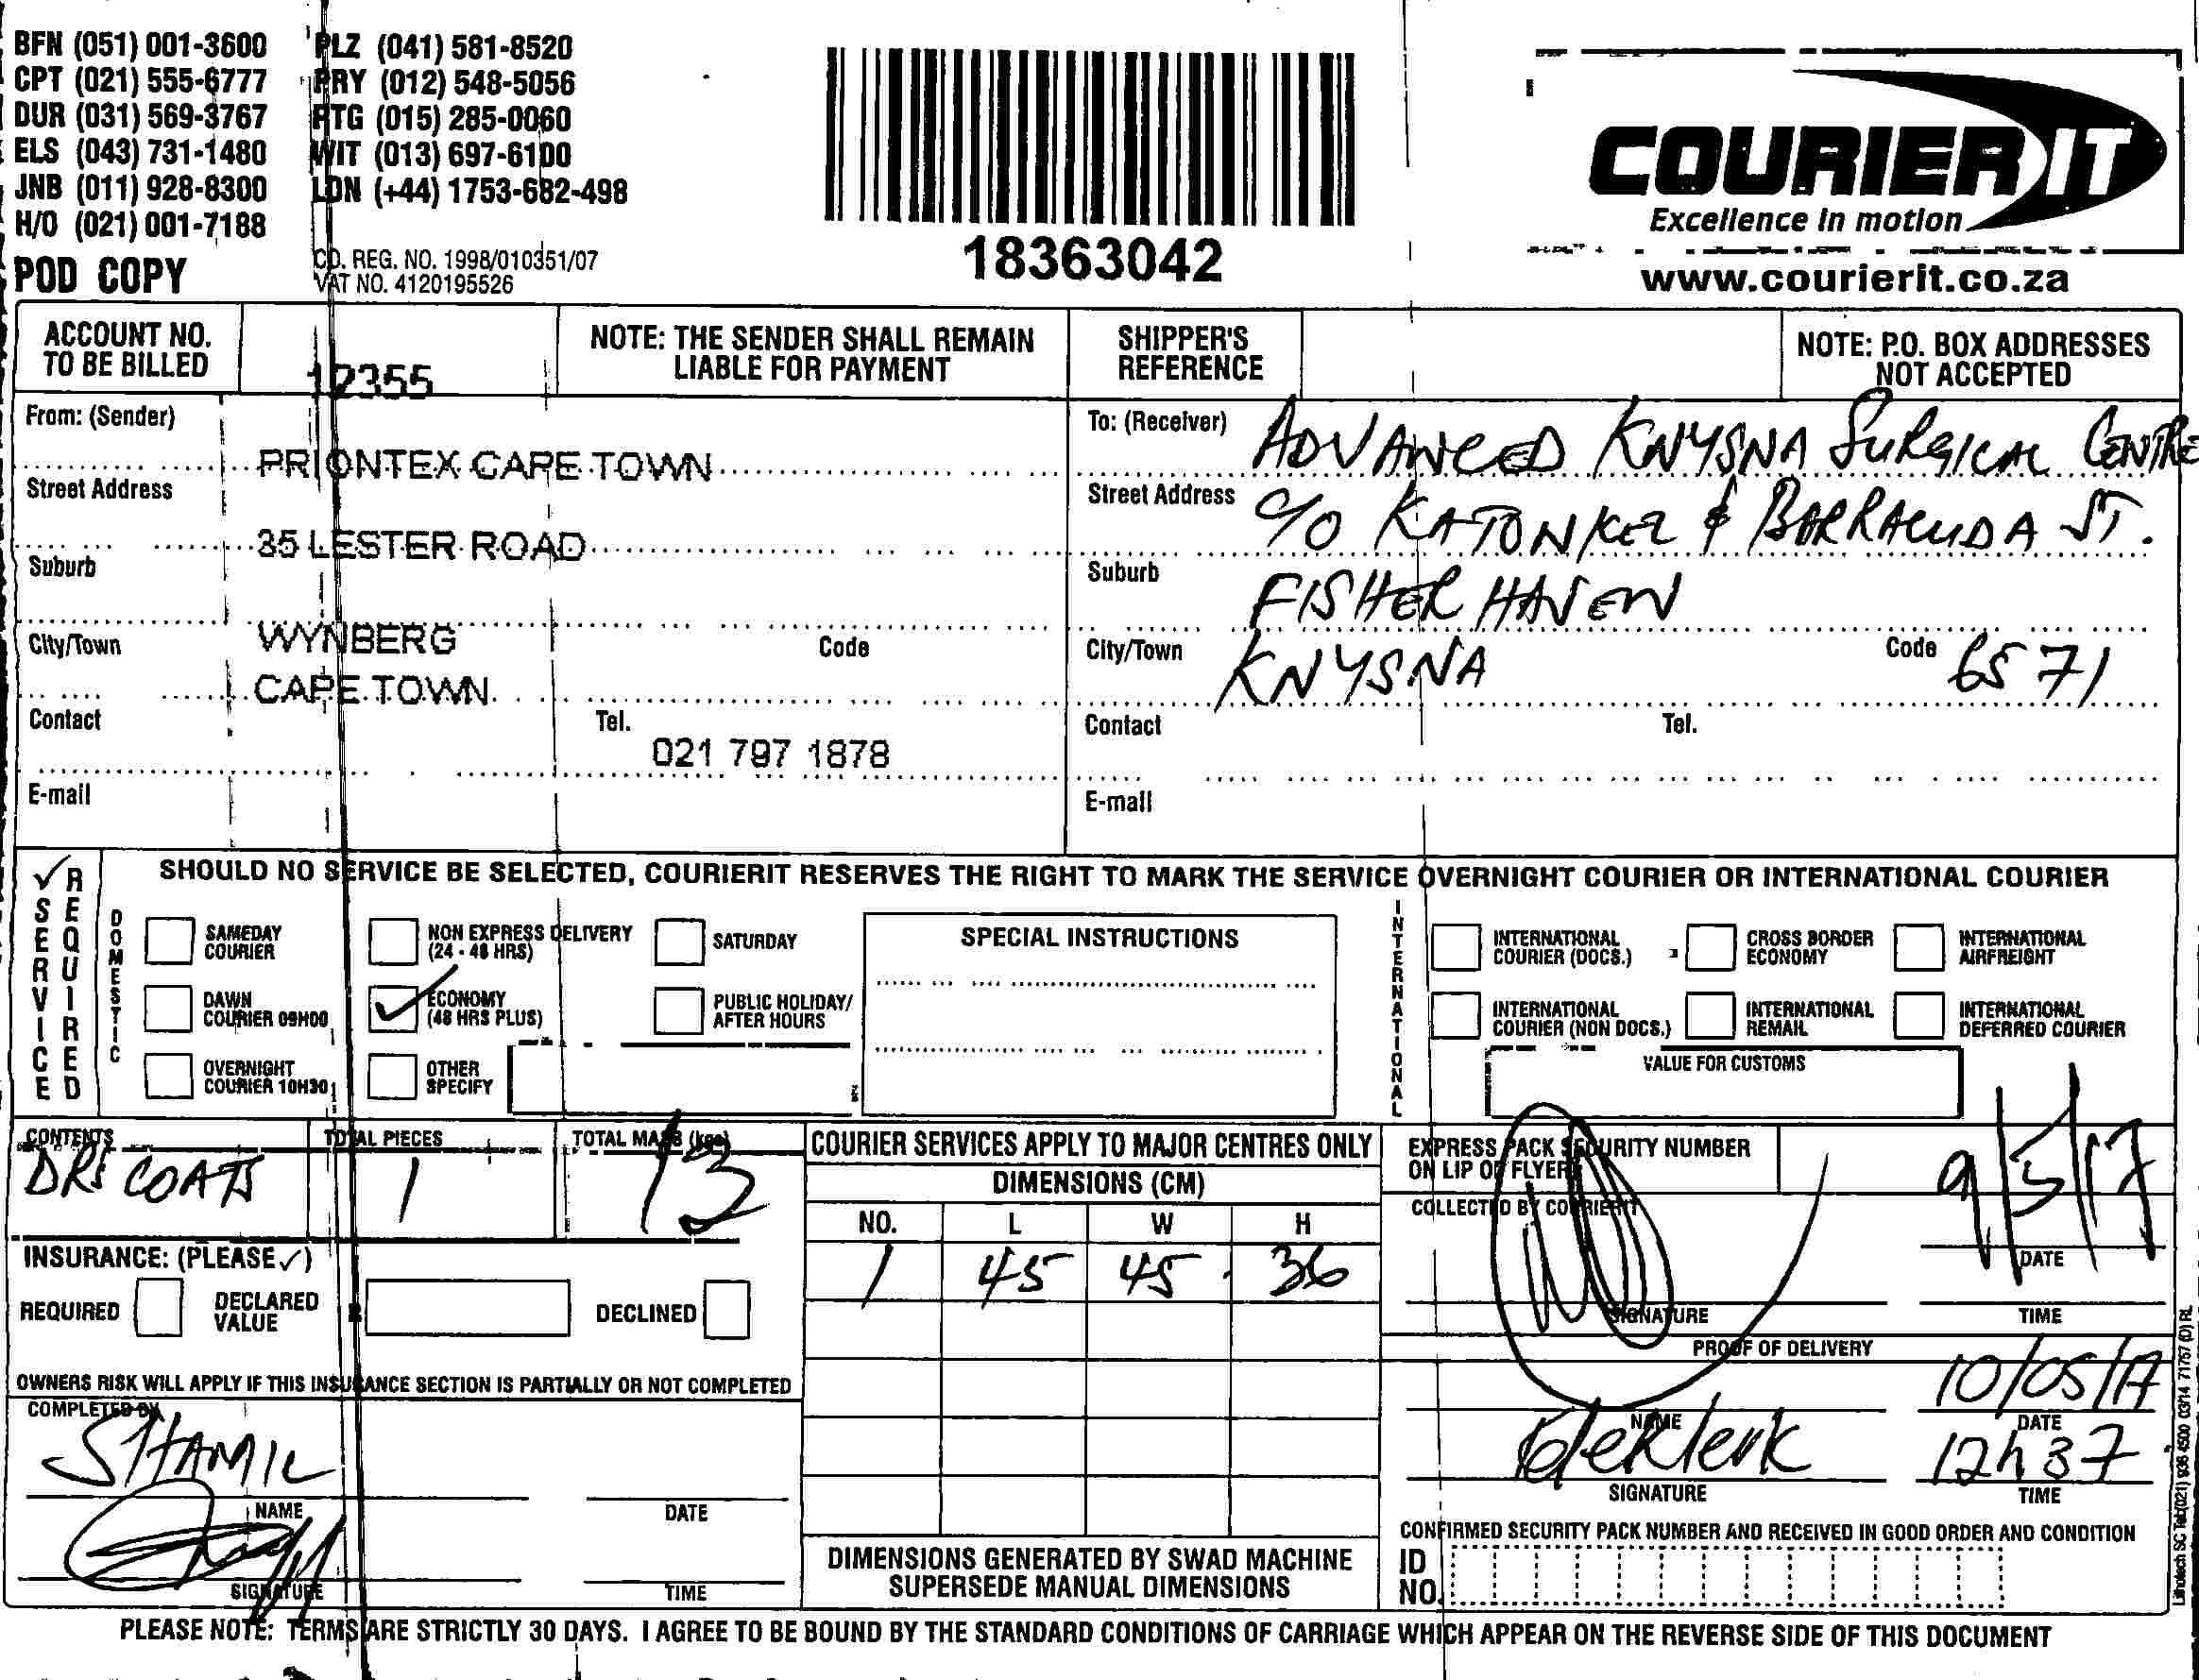 BFN (051) 001-3600 PLZ (041) 581-8520
CPT (021) 555-6777 PRY (012) 548-5056
DUR (031) 569-3767 PTG (015) 285-0060
ELS (043) 731-1480 WIT (013) 697-6100
JNB (011) 928-8300 LDN (+44) 1753-682-498
H/O (021) 001-7188
POD COPY
CO. REG. NO. 1998/010351/07
VAT NO. 4120195526
18363042
COURIER IT
Excellence in motion
www.courierit.co.za
ACCOUNT NO. TO BE BILLED
12355
NOTE: THE SENDER SHALL REMAIN LIABLE FOR PAYMENT
SHIPPER'S REFERENCE
NOTE: P.O. BOX ADDRESSES NOT ACCEPTED
From: (Sender)
PRIONTEX CAPE TOWN
Street Address
35 LESTER ROAD
Suburb
WYNBERG
City/Town
CAPE TOWN
Code
Contact
Tel.
021 797 1878
E-mail
To: (Receiver) ADVANCED KNYSNA SURGICAL CENTRE
Street Address C/O KATONKEL & BARRACUDA ST.
Suburb FISHER HAVEN
City/Town KNYSNA Code 6571
Contact Tel.
E-mail
✓ SERVICE REQUIRED
SHOULD NO SERVICE BE SELECTED, COURIERIT RESERVES THE RIGHT TO MARK THE SERVICE OVERNIGHT COURIER OR INTERNATIONAL COURIER
DOMESTIC
SAMEDAY COURIER
NON EXPRESS DELIVERY (24 - 48 HRS)
SATURDAY
DAWN COURIER 09H00
✓ ECONOMY (48 HRS PLUS)
PUBLIC HOLIDAY/ AFTER HOURS
OVERNIGHT COURIER 10H30
OTHER SPECIFY
SPECIAL INSTRUCTIONS
INTERNATIONAL
INTERNATIONAL COURIER (DOCS.)
CROSS BORDER ECONOMY
INTERNATIONAL AIRFREIGHT
INTERNATIONAL COURIER (NON DOCS.)
INTERNATIONAL REMAIL
INTERNATIONAL DEFERRED COURIER
VALUE FOR CUSTOMS
CONTENTS
DRS COATS
TOTAL PIECES
1
TOTAL MASS (kgs)
13
INSURANCE: (PLEASE ✓)
REQUIRED DECLARED VALUE R DECLINED
OWNERS RISK WILL APPLY IF THIS INSURANCE SECTION IS PARTIALLY OR NOT COMPLETED
COMPLETED BY
SHAMIL
NAME DATE
SIGNATURE TIME
COURIER SERVICES APPLY TO MAJOR CENTRES ONLY
DIMENSIONS (CM)
NO. L W H
1 45 45 36
DIMENSIONS GENERATED BY SWAD MACHINE SUPERSEDE MANUAL DIMENSIONS
EXPRESS PACK SECURITY NUMBER ON LIP OF FLYER
COLLECTED BY COURIERIT
9/5/17
DATE
SIGNATURE TIME
PROOF OF DELIVERY
10/05/17
NAME DATE
deklerk 12h37
SIGNATURE TIME
CONFIRMED SECURITY PACK NUMBER AND RECEIVED IN GOOD ORDER AND CONDITION
ID NO.
Lithotech SC Tel:(021) 936 4500 03/14 71757 (D) RL
PLEASE NOTE: TERMS ARE STRICTLY 30 DAYS. I AGREE TO BE BOUND BY THE STANDARD CONDITIONS OF CARRIAGE WHICH APPEAR ON THE REVERSE SIDE OF THIS DOCUMENT